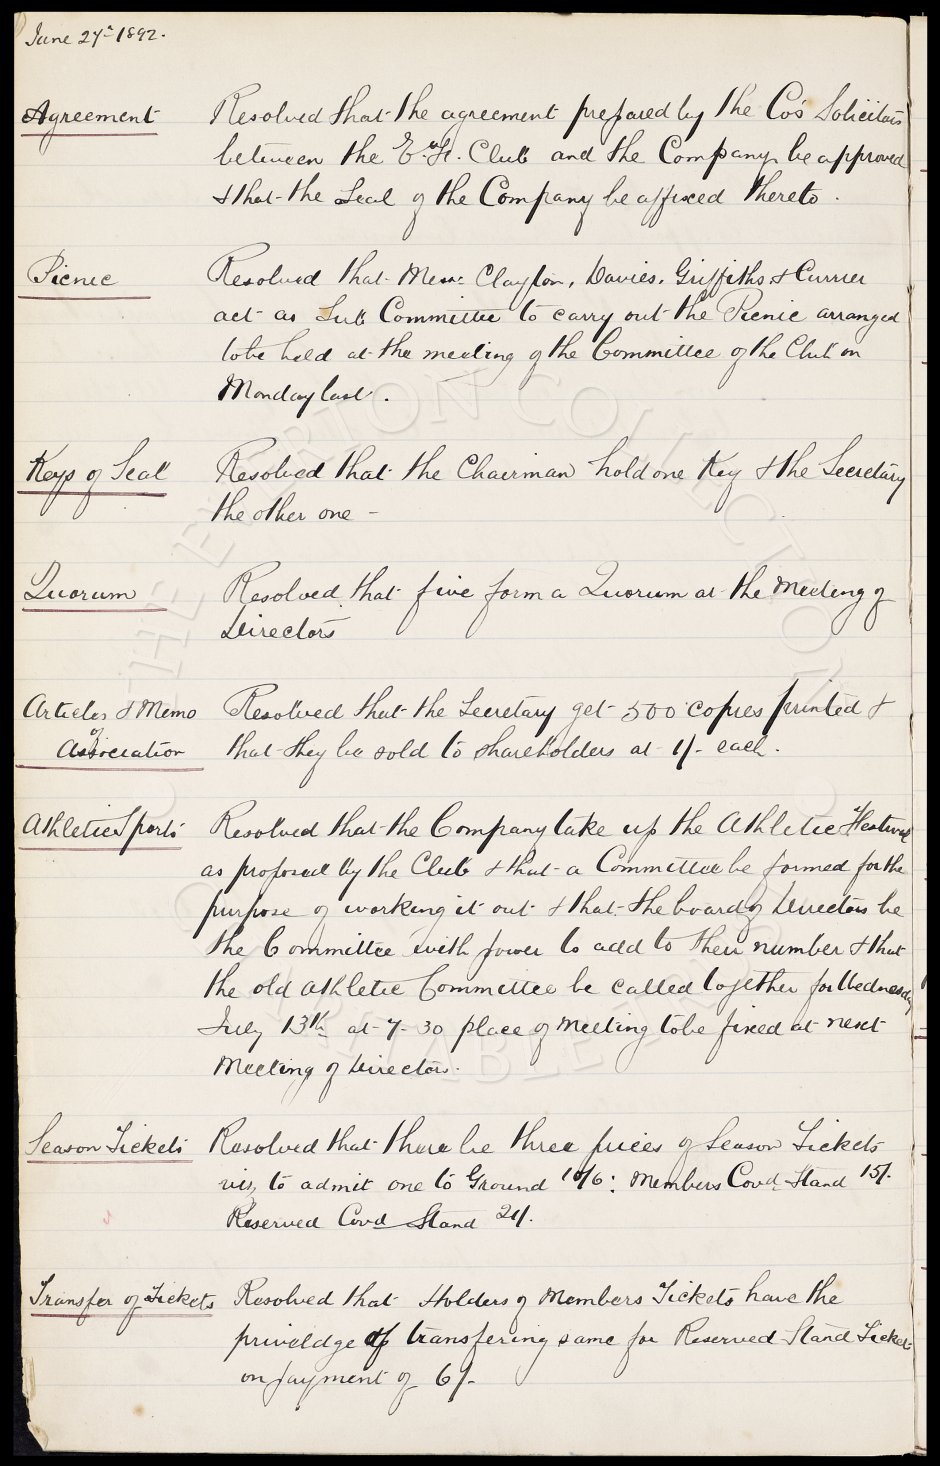 June 27th 1892.
Agreement Resolved that the agreement prepared by the Co's Solicitors
between the E. F. Club and the Company be approved
& that the Seal of the Company be affixed thereto.
Picnic Resolved that Messrs Clayton, Davies, Griffiths & Currier
act as Sub Committee to carry out the Picnic arranged
to be held at the meeting of the Committee of the Club on
Monday last.
Keys of Seal Resolved that the Chairman hold one Key & the Secretary
the other one –
Quorum Resolved that five form a Quorum at the Meeting of
Directors
Articles & Memo Resolved that the Secretary get 500 copies printed &
of
Association that they be sold to shareholders at 1/- each.
Athletic Sports Resolved that the Company take up the Athletic Festival
as proposed by the Club & that a Committee be formed for the
purpose of working it out & that the board of Directors be
the Committee with power to add to their number & that
the old Athletic Committee be called together for Wednesday
July 13th at 7-30 place of Meeting to be fixed at next
Meeting of Directors.
Season Tickets Resolved that there be three prices of Season Tickets
viz, to admit one to Ground 10/6: Members Covd Stand 15/.
Reserved Covd Stand 21/.
Transfer of Tickets Resolved that Holders of Members Tickets have the
priveldge of transfering same for Reserved Stand Tickets
on payment of 6/-
THE EVERTON COLLECTION
CHARITABLE TRUST